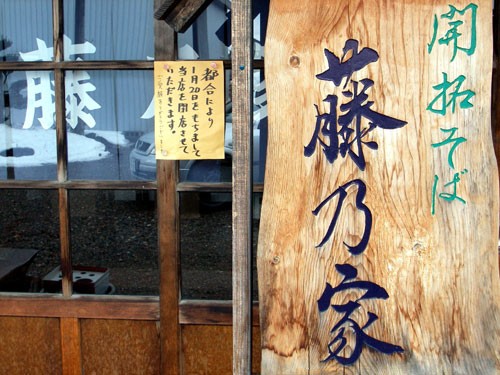 開拓そば
藤乃家
都合により
1月20日をもちまして
当店を閉店させて
いただきます。
藤